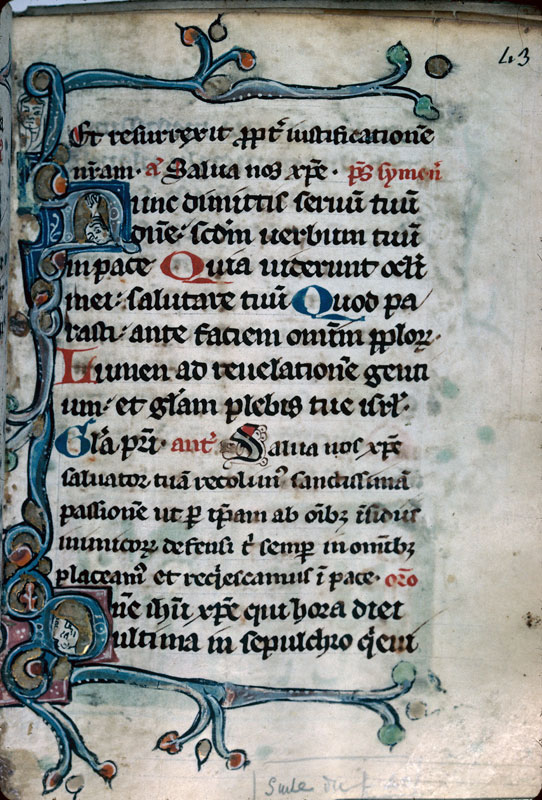 43
Et resurrexit ꝓpt̄ iustificationē
nr̄am· a᷑ Salua nos xp̄e· p̄s symeō
Nunc dimittis seruū tuū
dn̄e: scd̄m uerbum tuū
in pace Quia uiderunt ocl̄i
mei: salutare tuū Quod pa
rasti: ante faciem omīm pp̄loꝝ·
Lumen ad reuelationē genti
um: et gl̄am plebis tue isrl̄·
Gl̄a pr̄i· ant᷑ Salua nos xp̄e
saluator tuā recolimꝰ sanctissimā
passionē ut ꝑ ip̄am ab oīb; īsidiis
inimicoꝝ defensi t̄ semꝑ in omīb;
placeamꝰ et req̇escamus ī pace· or̄o
Dn̄e ihū xp̄e qui hora diei
ultima in sepulchro q̇eui
Suite du f.